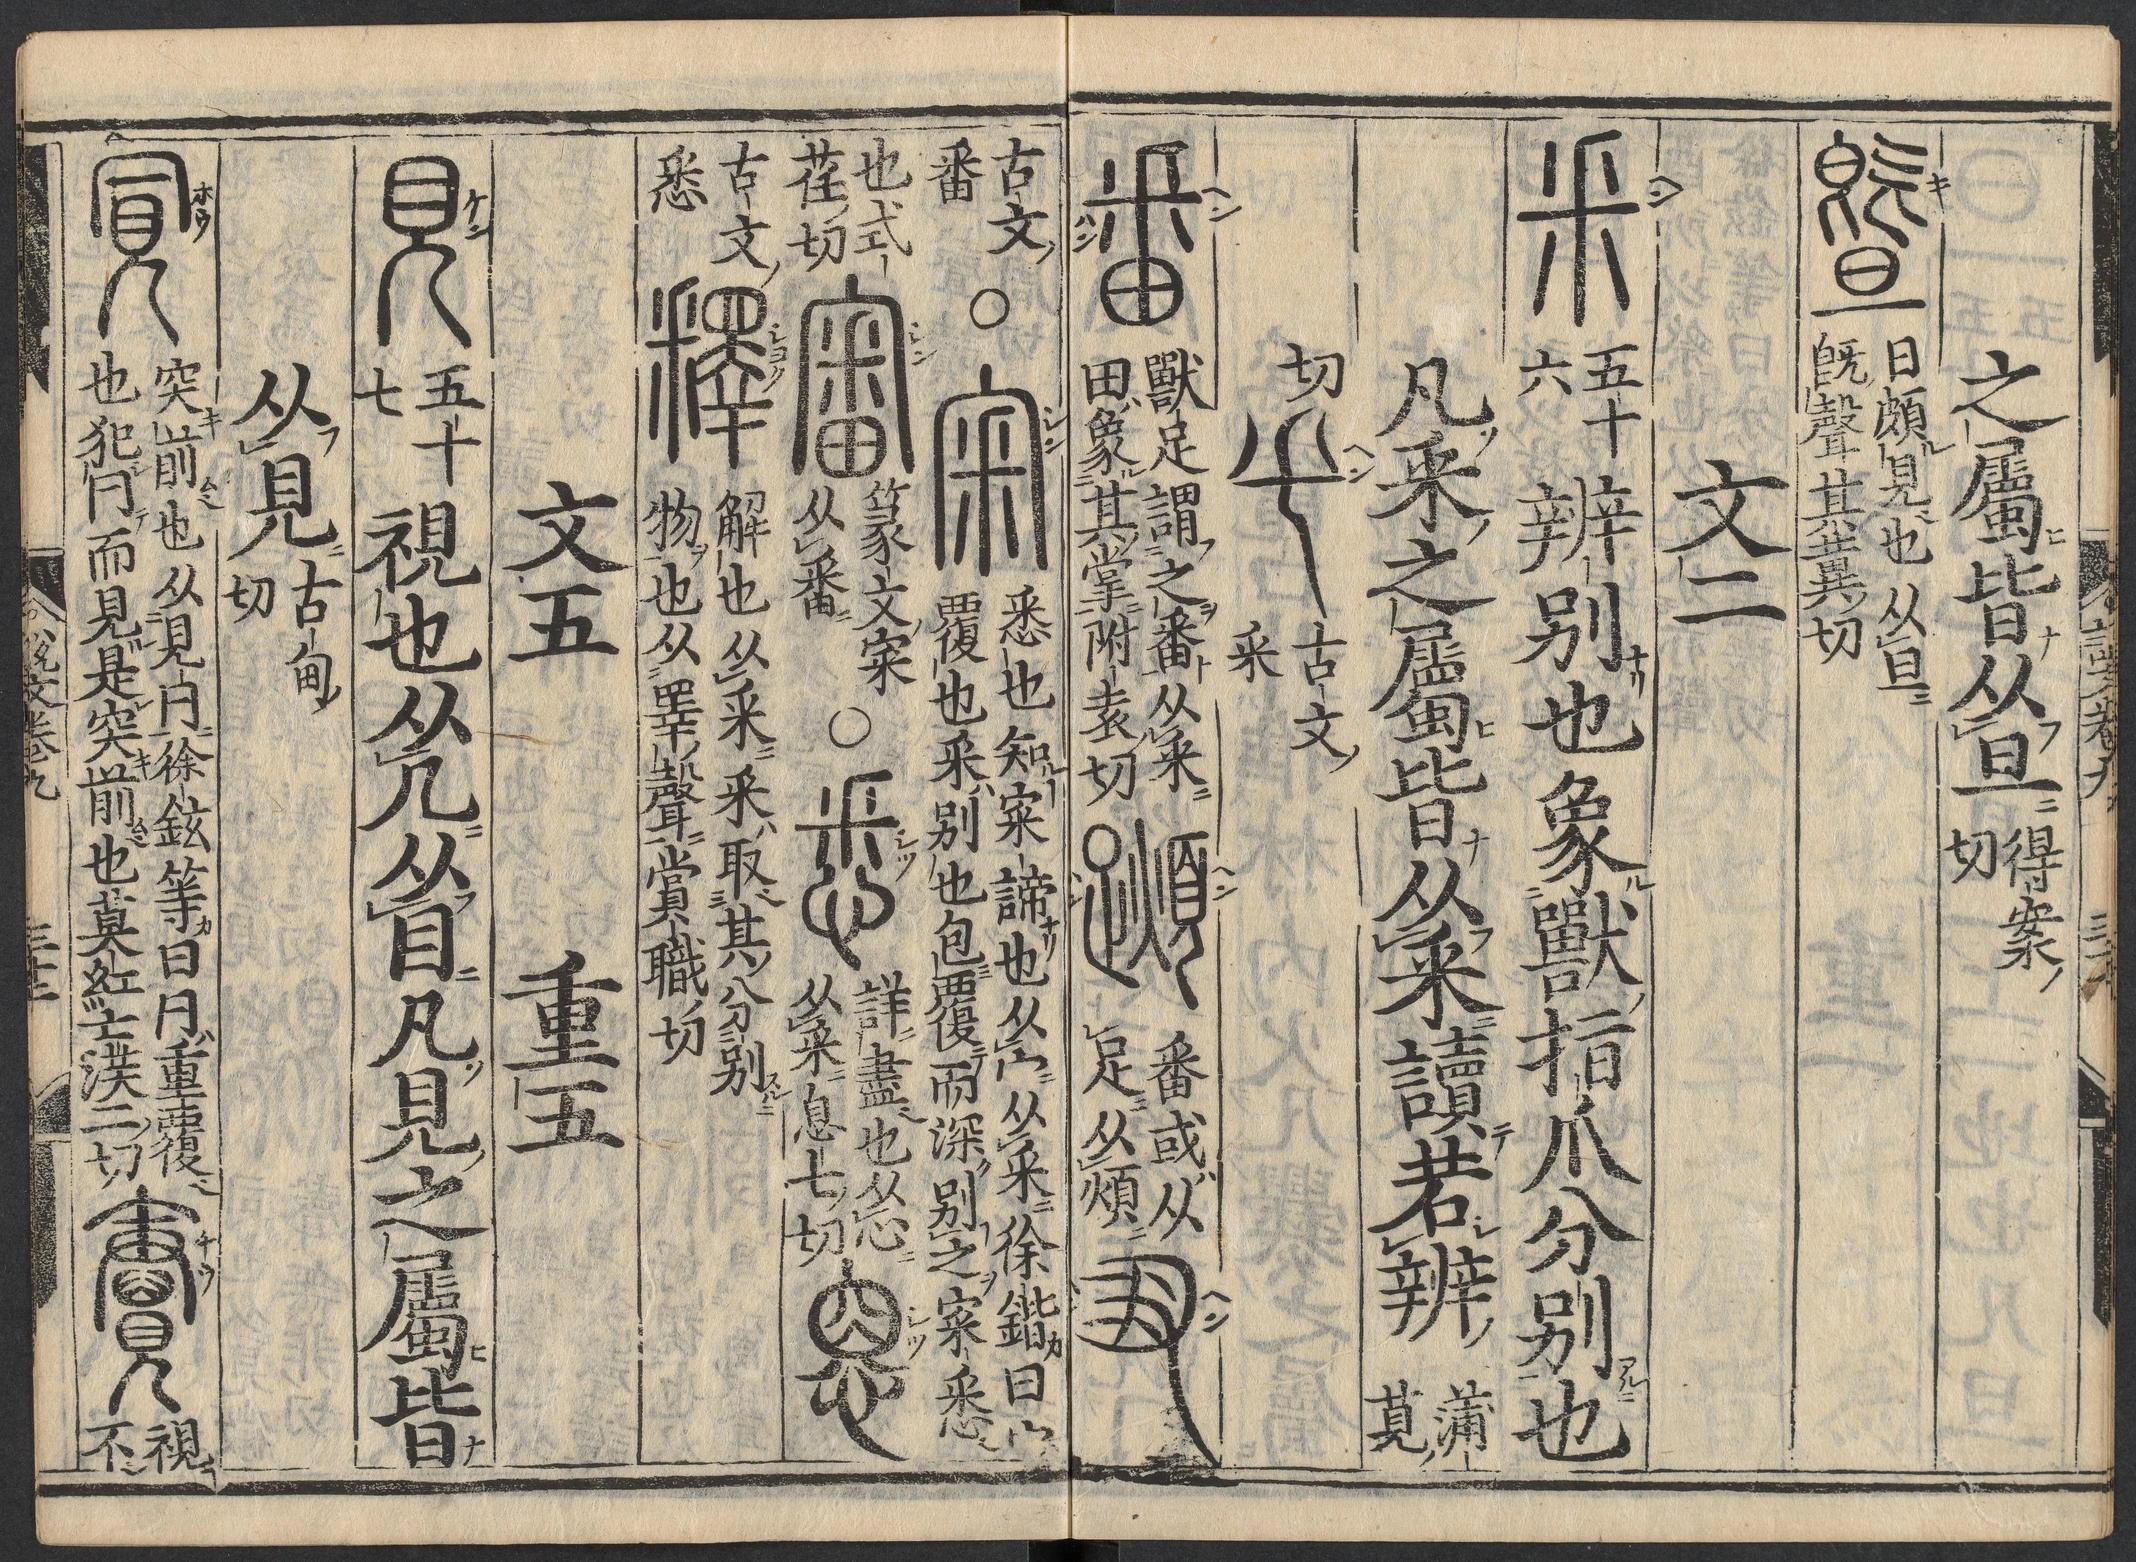 之屬皆从旦 得案切
暨 日頗見也从旦既聲其兾切
文二
釆 五十六 辨别也象獸指爪分别也
凡釆之屬皆从釆讀若辨 蒲莧
切 古文釆
番 獸足謂之番从釆田象其掌附袁切 番或从足从煩
古文番 ○ 宷 悉也知宷諦也从宀从釆徐鍇曰宀
覆也釆别也包覆而深别之宷悉
也式荏切 審 篆文宷从番 ○ 悉 詳盡也从心从釆息七切
古文悉 釋 解也从釆釆取其分别物也从睪聲賞職切
文五 重五
見 五十七 視也从几从目凡見之屬皆
从見 古甸切
突前也从見冃徐鉉等曰冃重覆也犯冃而見是突前也莫紅亡沃二切 視不
說文卷九